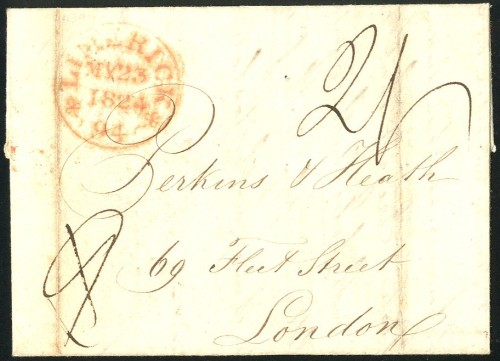 LIMERICK
MY23
1824
94
2/1
Perkins & Heath
8
69 Fleet Street
London